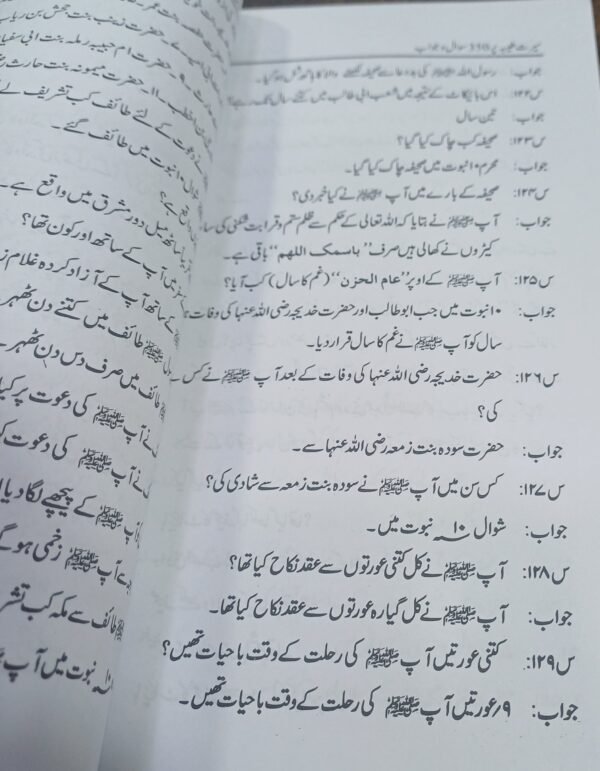 سیرت طیبہ پر 350 سوال و جواب
جواب: رسول اللہ ﷺ کی بددعا سے صحیفہ لکھنے والا کا ہاتھ شل ہو گیا۔
س۱۲۲: اس بائیکاٹ کے نتیجہ میں شعب ابی طالب میں کتنے سال تک رہے؟
جواب: تین سال
س۱۲۳: صحیفہ کب چاک کیا گیا؟
جواب: محرم ۱۰ نبوت میں صحیفہ چاک کیا گیا۔
س۱۲۴: صحیفہ کے بارے میں آپ ﷺ نے کیا خبر دی؟
جواب: آپ ﷺ نے بتایا کہ اللہ تعالی کے حکم سے ظلم ستم و قرابت شکنی کی سا
کیڑوں نے کھا لی ہیں صرف "باسمک اللھم" باقی ہے۔
س۱۲۵: آپ ﷺ کے اوپر "عام الحزن" (غم کا سال) کب آیا؟
جواب: ۱۰ نبوت میں جب ابو طالب اور حضرت خدیجہ رضی اللہ عنہا کی وفات
سال کو آپ ﷺ نے غم کا سال قرار دیا۔
س۱۲۶: حضرت خدیجہ رضی اللہ عنہا کی وفات کے بعد آپ ﷺ نے کس
کی؟
جواب: حضرت سودہ بنت زمعہ رضی اللہ عنہا سے۔
س۱۲۷: کس سن میں آپ ﷺ نے سودہ بنت زمعہ سے شادی کی؟
جواب: شوال ۱۰ نبوت میں۔
س۱۲۸: آپ ﷺ نے کل کتنی عورتوں سے عقد نکاح کیا تھا؟
جواب: آپ ﷺ نے کل گیارہ عورتوں سے عقد نکاح کیا تھا۔
س۱۲۹: کتنی عورتیں آپ ﷺ کی رحلت کے وقت با حیات تھیں؟
جواب: ۹/عورتیں آپ ﷺ کی رحلت کے وقت با حیات تھیں۔
حضرت زینب بنت جحش بن ریاب
حضرت ام حبیبہ رملہ بنت ابی سفیا
۱۱۔ حضرت میمونہ بنت حارث
دعوت کے لئے طائف کب تشریف لے
۱۰ نبوت میں طائف گئے۔
میل دور مشرق میں واقع ہے۔
میں آپ کے ساتھ اور کون تھا؟
کے ساتھ آپ کے آزاد کردہ غلام ز
ﷺ طائف میں کتنے دن ٹھہر
طائف میں صرف دس دن ٹھہر
نے آپ ﷺ کی دعوت پر کیا
نے آپ ﷺ کی دعوت ک
ﷺ کے پیچھے لگا دیا
آپ ﷺ زخمی ہو گ
طائف سے مکہ کب تشر
نبوت میں آپ